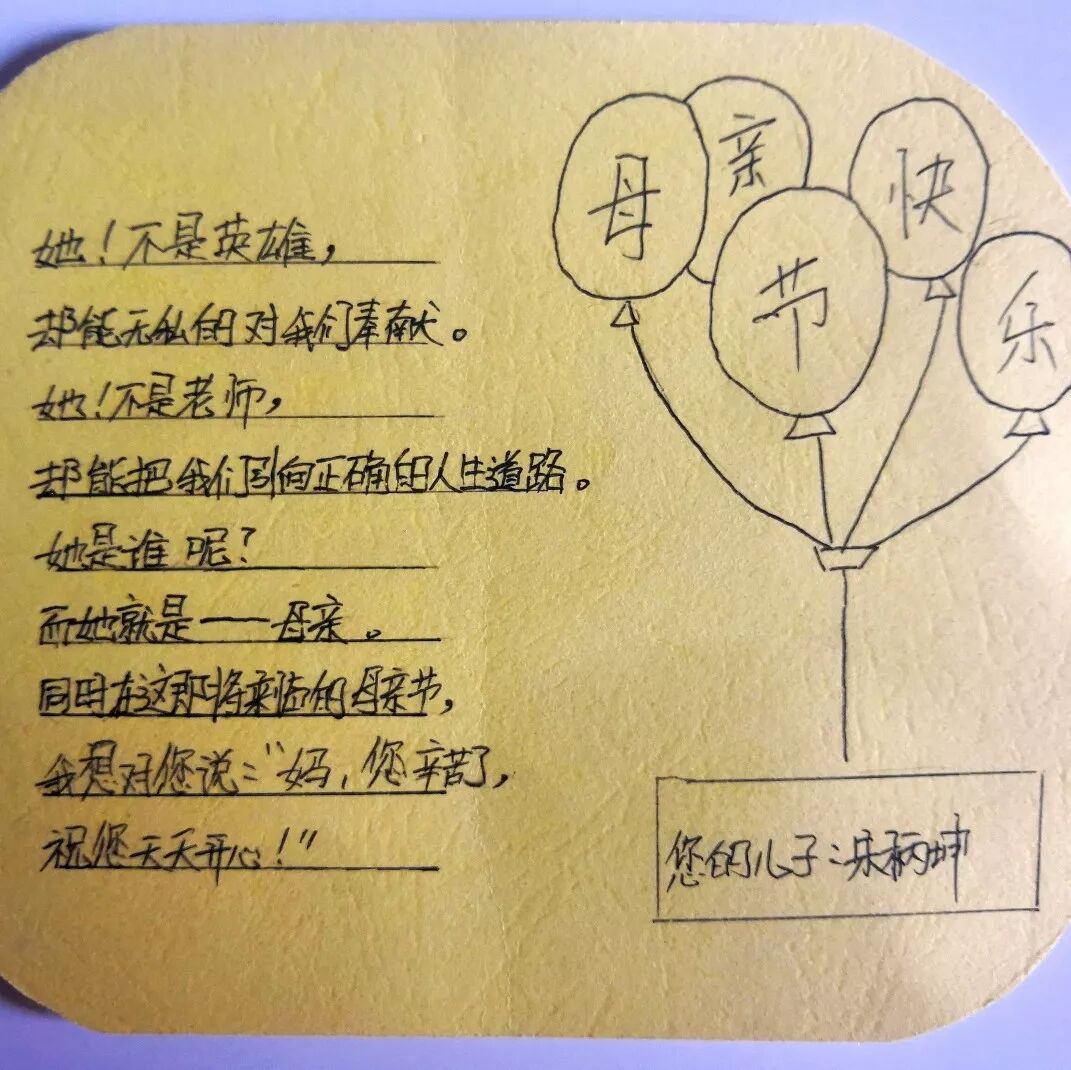 她！不是英雄，
却能无私的对我们奉献。
她！不是老师，
却能把我们引向正确的人生道路。
她是谁呢？
而她就是——母亲。
同时在这即将来临的母亲节，
我想对您说："妈，您辛苦了，
祝您天天开心！"
母亲节快乐
您的儿子：柄坤